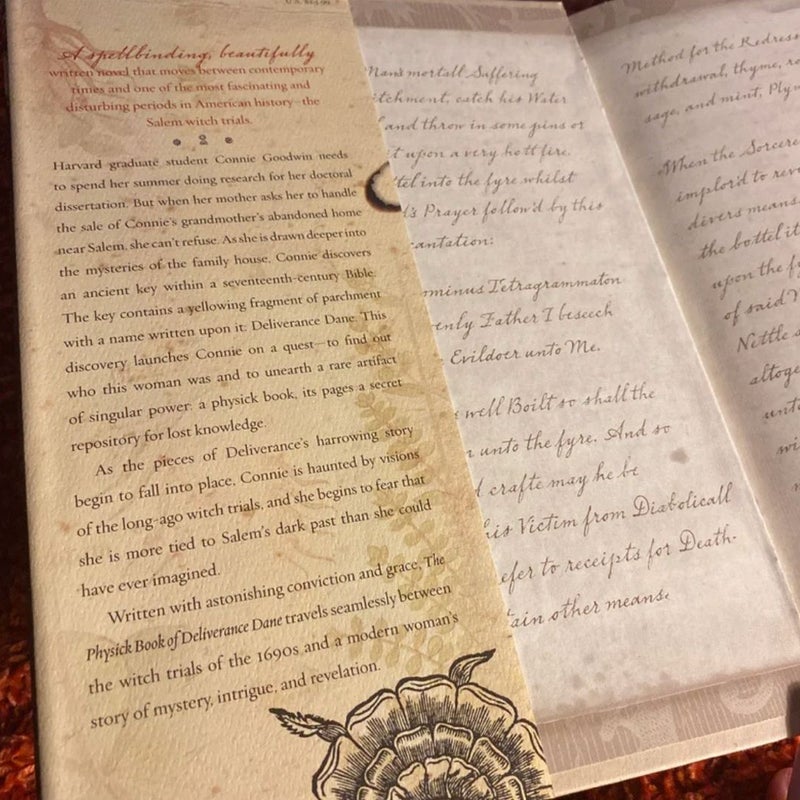 U.S. $25.99
A spellbinding, beautifully
written novel that moves between contemporary
times and one of the most fascinating and
disturbing periods in American history—the
Salem witch trials.
Harvard graduate student Connie Goodwin needs
to spend her summer doing research for her doctoral
dissertation. But when her mother asks her to handle
the sale of Connie's grandmother's abandoned home
near Salem, she can't refuse. As she is drawn deeper into
the mysteries of the family house, Connie discovers
an ancient key within a seventeenth-century Bible.
The key contains a yellowing fragment of parchment
with a name written upon it: Deliverance Dane. This
discovery launches Connie on a quest—to find out
who this woman was and to unearth a rare artifact
of singular power: a physick book, its pages a secret
repository for lost knowledge.
As the pieces of Deliverance's harrowing story
begin to fall into place, Connie is haunted by visions
of the long-ago witch trials, and she begins to fear that
she is more tied to Salem's dark past than she could
have ever imagined.
Written with astonishing conviction and grace, The
Physick Book of Deliverance Dane travels seamlessly between
the witch trials of the 1690s and a modern woman's
story of mystery, intrigue, and revelation.
Man's mortall Suffering
itchment, catch his Water
and throw in some pins or
t upon a very hott fire.
tel into the fyre whilst
d's Prayer follow'd by this
cantation:
ominus Tetragrammaton
enly Father I beseech
Evildoer unto Me.
well Boilt so shall the
n unto the fyre. And so
d crafte may he be
his Victim from Diabolicall
efer to receipts for Death-
tain other means.
Method for the Redress
withdrawal, thyme, ro
sage, and mint, Plyw
When the Sorcere
implor'd to reve
divers means.
the bottel it
upon the f
of said
Nettle s
altoge
unto
wi